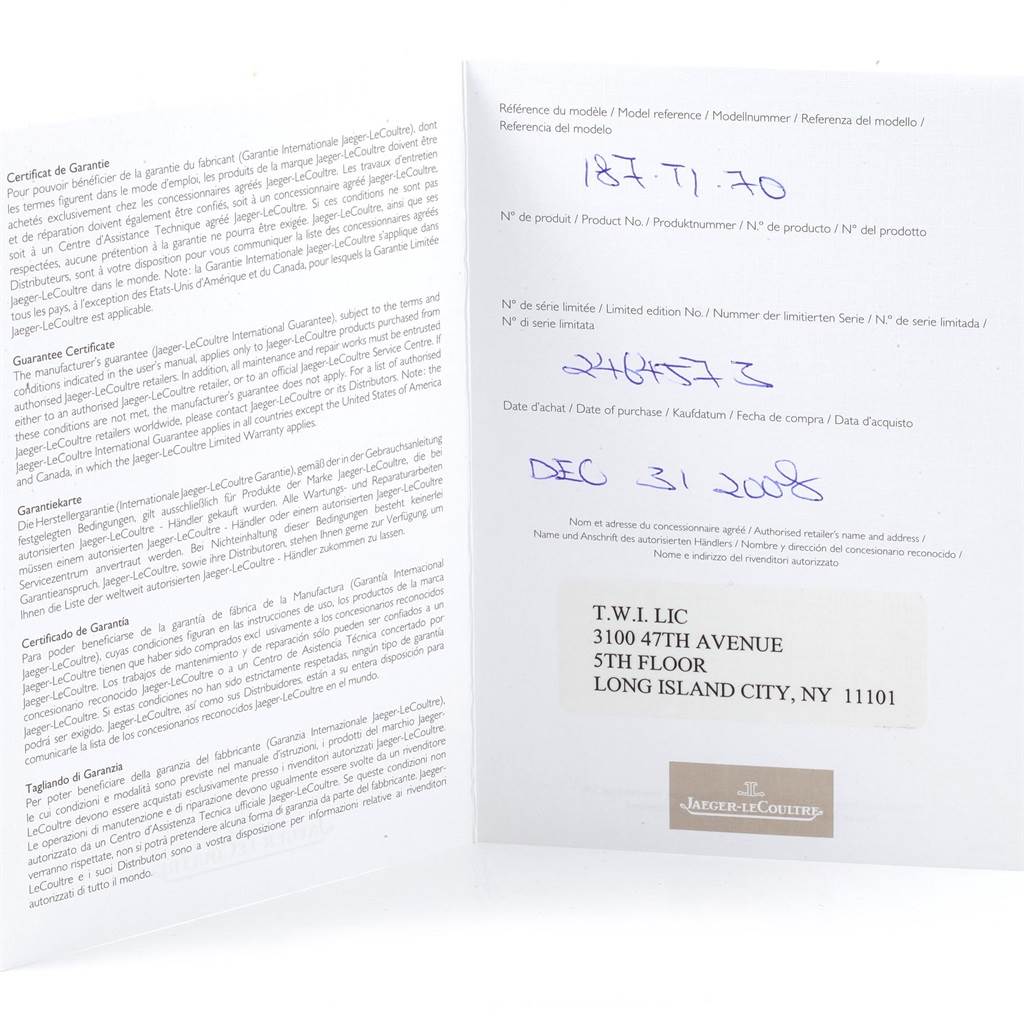 Certificat de Garantie
Pour pouvoir bénéficier de la garantie du fabricant (Garantie Internationale Jaeger-LeCoultre), dont
les termes figurent dans le mode d'emploi, les produits de la marque Jaeger-LeCoultre doivent être
achetés exclusivement chez les concessionnaires agréés Jaeger-LeCoultre. Les travaux d'entretien
et de réparation doivent également être confiés, soit à un concessionnaire agréé Jaeger-LeCoultre,
soit à un Centre d'Assistance Technique agréé Jaeger-LeCoultre. Si ces conditions ne sont pas
respectées, aucune prétention à la garantie ne pourra être exigée. Jaeger-LeCoultre, ainsi que ses
Distributeurs, sont à votre disposition pour vous communiquer la liste des concessionnaires agréés
Jaeger-LeCoultre dans le monde. Note: la Garantie Internationale Jaeger-LeCoultre s'applique dans
tous les pays, à l'exception des Etats-Unis d'Amérique et du Canada, pour lesquels la Garantie Limitée
Jaeger-LeCoultre est applicable.
Guarantee Certificate
The manufacturer's guarantee (Jaeger-LeCoultre International Guarantee), subject to the terms and
conditions indicated in the user's manual, applies only to Jaeger-LeCoultre products purchased from
authorised Jaeger-LeCoultre retailers. In addition, all maintenance and repair works must be entrusted
either to an authorised Jaeger-LeCoultre retailer, or to an official Jaeger-LeCoultre Service Centre. If
these conditions are not met, the manufacturer's guarantee does not apply. For a list of authorised
Jaeger-LeCoultre retailers worldwide, please contact Jaeger-LeCoultre or its Distributors. Note: the
Jaeger-LeCoultre International Guarantee applies in all countries except the United States of America
and Canada, in which the Jaeger-LeCoultre Limited Warranty applies.
Garantiekarte
Die Herstellergarantie (Internationale Jaeger-LeCoultre Garantie), gemäß der in der Gebrauchsanleitung
festgelegten Bedingungen, gilt ausschließlich für Produkte der Marke Jaeger-LeCoultre, die bei
autorisierten Jaeger-LeCoultre - Händler gekauft wurden. Alle Wartungs- und Reparaturarbeiten
müssen einem autorisierten Jaeger-LeCoultre - Händler oder einem autorisierten Jaeger-LeCoultre
Servicezentrum anvertraut werden. Bei Nichteinhaltung dieser Bedingungen besteht keinerlei
Garantieanspruch. Jaeger-LeCoultre, sowie ihre Distributoren, stehen Ihnen gerne zur Verfügung, um
Ihnen die Liste der weltweit autorisierten Jaeger-LeCoultre - Händler zukommen zu lassen.
Certificado de Garantía
Para poder beneficiarse de la garantía de fábrica de la Manufactura (Garantía Internacional
Jaeger-LeCoultre), cuyas condiciones figuran en las instrucciones de uso, los productos de la marca
Jaeger-LeCoultre tienen que haber sido comprados excl usivamente a los concesionarios reconocidos
Jaeger-LeCoultre. Los trabajos de mantenimiento y de reparación sólo pueden ser confiados a un
concesionario reconocido Jaeger-LeCoultre o a un Centro de Asistencia Técnica concertado por
Jaeger-LeCoultre. Si estas condiciones no han sido estrictamente respetadas, ningún tipo de garantía
podrá ser exigido. Jaeger-LeCoultre, así como sus Distribuidores, están a su entera disposición para
comunicarle la lista de los concesionarios reconocidos Jaeger-LeCoultre en el mundo.
Tagliando di Garanzia
Per poter beneficiare della garanzia del fabbricante (Garanzia Internazionale Jaeger-LeCoultre),
le cui condizioni e modalità sono previste nel manuale d'istruzioni, i prodotti del marchio Jaeger-
LeCoultre devono essere acquistati esclusivamente presso i rivenditori autorizzati Jaeger-LeCoultre.
Le operazioni di manutenzione e di riparazione devono ugualmente essere svolte da un rivenditore
autorizzato da un Centro d'Assistenza Tecnica ufficiale Jaeger-LeCoultre. Se queste condizioni non
verranno rispettate, non si potrà pretendere alcuna forma di garanzia da parte del fabbricante. Jaeger-
LeCoultre e i suoi Distributori sono a vostra disposizione per informazioni relative ai rivenditori
autorizzati di tutto il mondo.
Référence du modèle / Model reference / Modellnummer / Referenza del modello /
Referencia del modelo
187.T1.70
N° de produit / Product No. / Produktnummer / N.° de producto / N° del prodotto
N° de série limitée / Limited edition No. / Nummer der limitierten Serie / N.° de serie limitada /
N° di serie limitata
2464573
Date d'achat / Date of purchase / Kaufdatum / Fecha de compra / Data d'acquisto
DEC 31 2008
Nom et adresse du concessionnaire agréé / Authorised retailer's name and address /
Name und Anschrift des autorisierten Händlers / Nombre y dirección del concesionario reconocido /
Nome e indirizzo del rivenditori autorizzato
T.W.I. LIC
3100 47TH AVENUE
5TH FLOOR
LONG ISLAND CITY, NY 11101
JAEGER-LECOULTRE